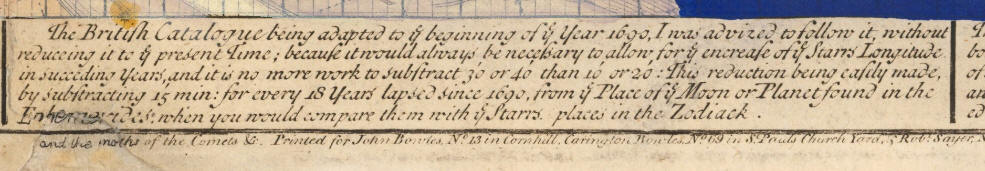 The British Catalogue being adapted to yͤ beginning of yͤ Year 1690, I was advized to follow it, without
reduceing it to yͤ present Time; because it would always be necessary to allow for yͤ encrease of yͤ Starrs Longitude
in succeding Years, and it is no more work to substract 30 or 40 than 10 or 20: This reduction being easily made,
by substracting 15 min: for every 18 Years lapsed since 1690, from yͤ Place of yͤ Moon or Planet found in the
Ephemerides, when you would compare them with yͤ Starrs places in the Zodiack.
and the moths of the Comets &c. Printed for John Bowles, Nº. 13 in Cornhill, Carington Bowles, Nº 69 in St. Pauls Church Yard, & Robt. Sayer,